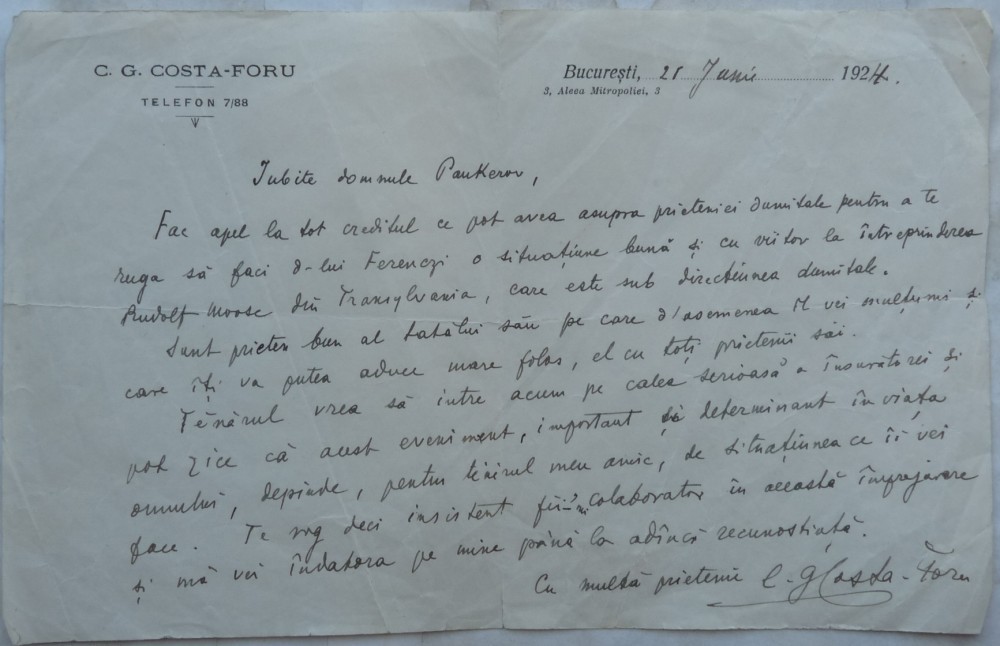 C. G. COSTA-FORU
TELEFON 7/88
București, 21 Junie 1924.
3, Aleea Mitropoliei, 3
Iubite domnule Paukerov,
Fac apel la tot creditul ce pot avea asupra prieteniei dumitale pentru a te
ruga să faci d-lui Ferenczi o situațiune bună și cu viitor la întreprinderea
Rudolf Mosse din Transylvania, care este sub direcțiunea dumitale.
Sunt prieten bun al tatălui său pe care d'asemenea îl vei mulțumi și
care îți va putea aduce mare folos, el cu toți prietenii săi.
Tênărul vrea să intre acum pe calea serioasă a însurătorei și
pot zice că acest eveniment, important și determinant în viața
omului, depinde, pentru tînărul meu amic, de situațiunea ce îi vei
face. Te rog deci insistent fii-mi colaborator în această împrejurare
și mă vei îndatora pe mine până la adîncă recunostiață.
Cu multă prietenie C. G. Costa-Foru